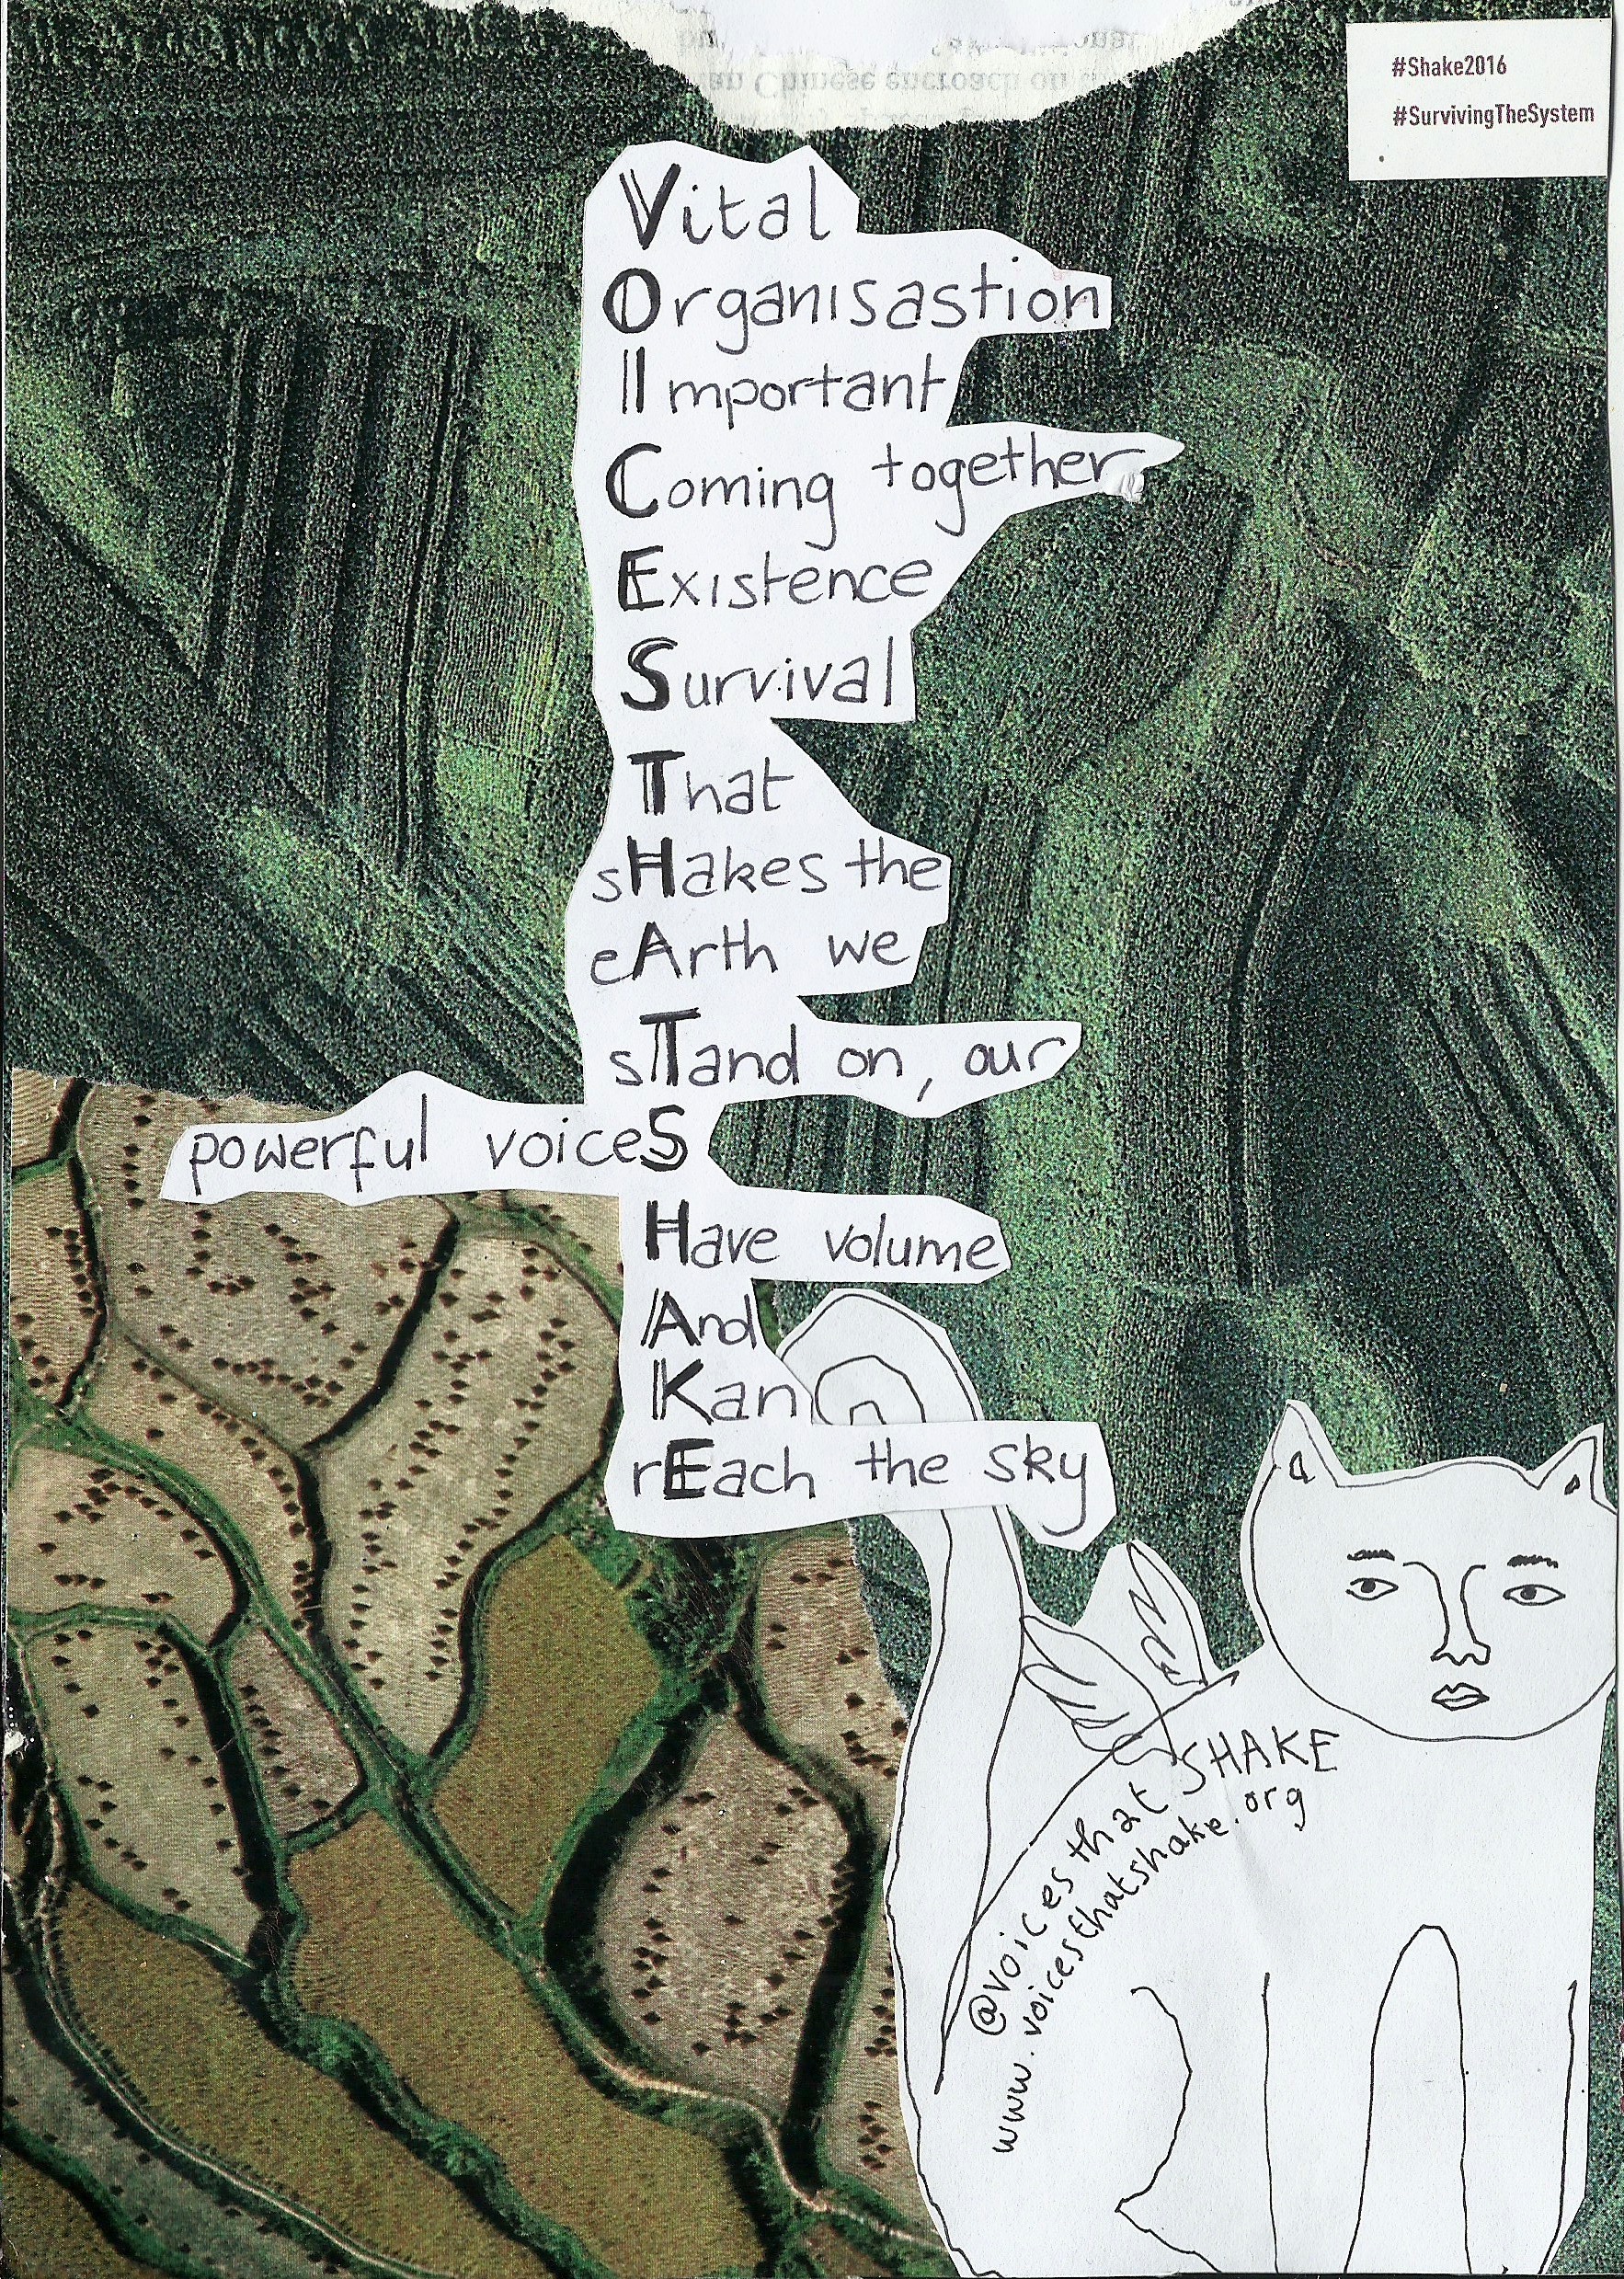 an Chinese encroach on
#Shake2016
#SurvivingTheSystem
Vital
Organisastion
Important
Coming together
Existence
Survival
That
sHakes the
eArth we
sTand on, our
powerful voiceS
Have volume
And
Kan
rEach the sky
@voices that SHAKE
www.voicesthatshake.org